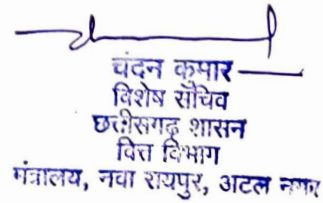 चंदन कुमार
विशेष सचिव
छत्तीसगढ़ शासन
वित्त विभाग
मंत्रालय, नवा रायपुर, अटल नगर